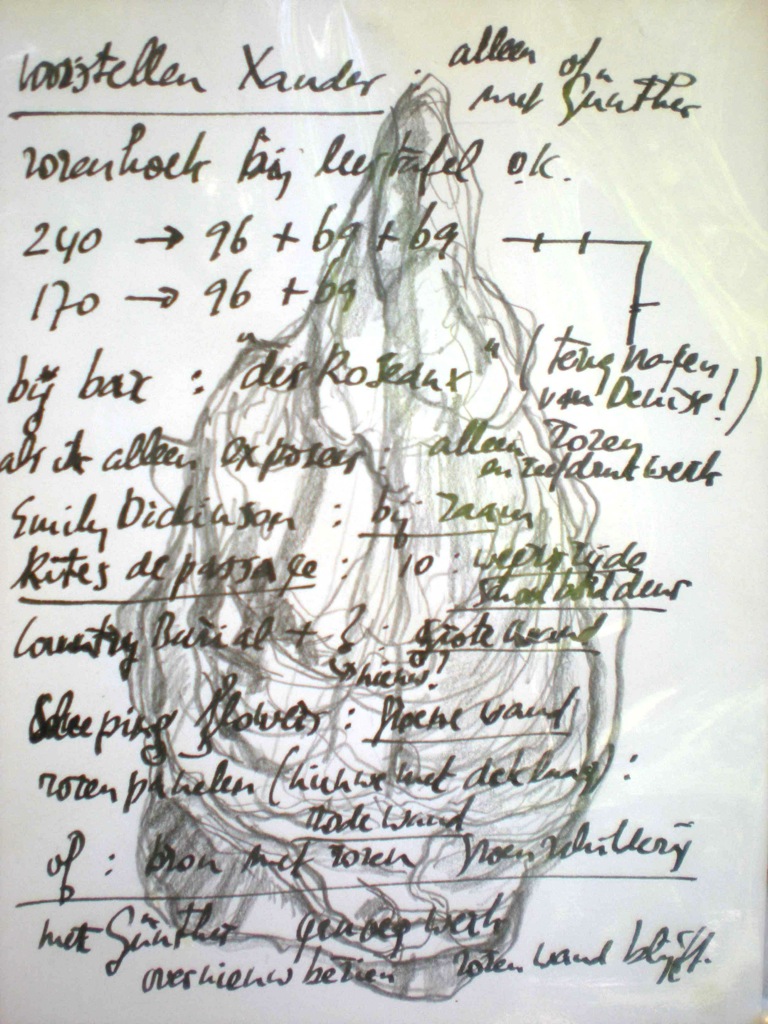 voorstellen Xander : alleen of
met Günther
rozenhoek bij leestafel o.k.
240 → 96 + 69 + 69
170 → 96 + 69
bij bar : "des Roseaux" (terug halen
van Denise!)
als ik alleen exposeer : alleen rozen
en zeefdrukwerk
Emily Dickinson : bij raam
Rites de passage : 10 : weerszijde
schuifdeur
Country Burial + ? : grote wand
nieuw!
Sleeping flowers : groene wand
rozen panelen (nieuwe met dekking) :
rode wand
of : bron met rozen groen schilderij
met Günther genoeg werk
overnieuw bezien rozen wand blijft.